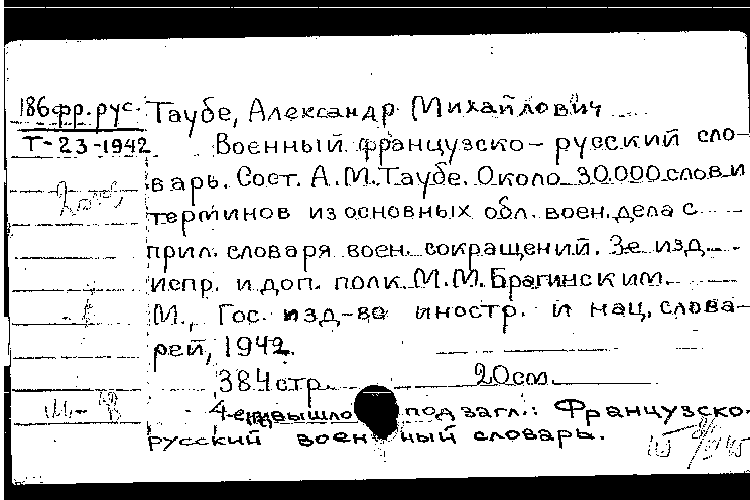 186фр.рус.
Т-23-1942
Таубе, Александр Михайлович
Военный французско-русский сло-
варь. Сост. А.М.Таубе. Около 30.000 слов и
терминов из основных обл. воен. дела с
прил. словаря воен. сокращений. 3е изд.
испр. и доп. полк. М.М.Брагинским.
М., Гос. изд-во иностр. и нац. слова-
рей, 1942.
384 стр. 20см.
4-е вышло под загл.: Французско-
русский военный словарь.